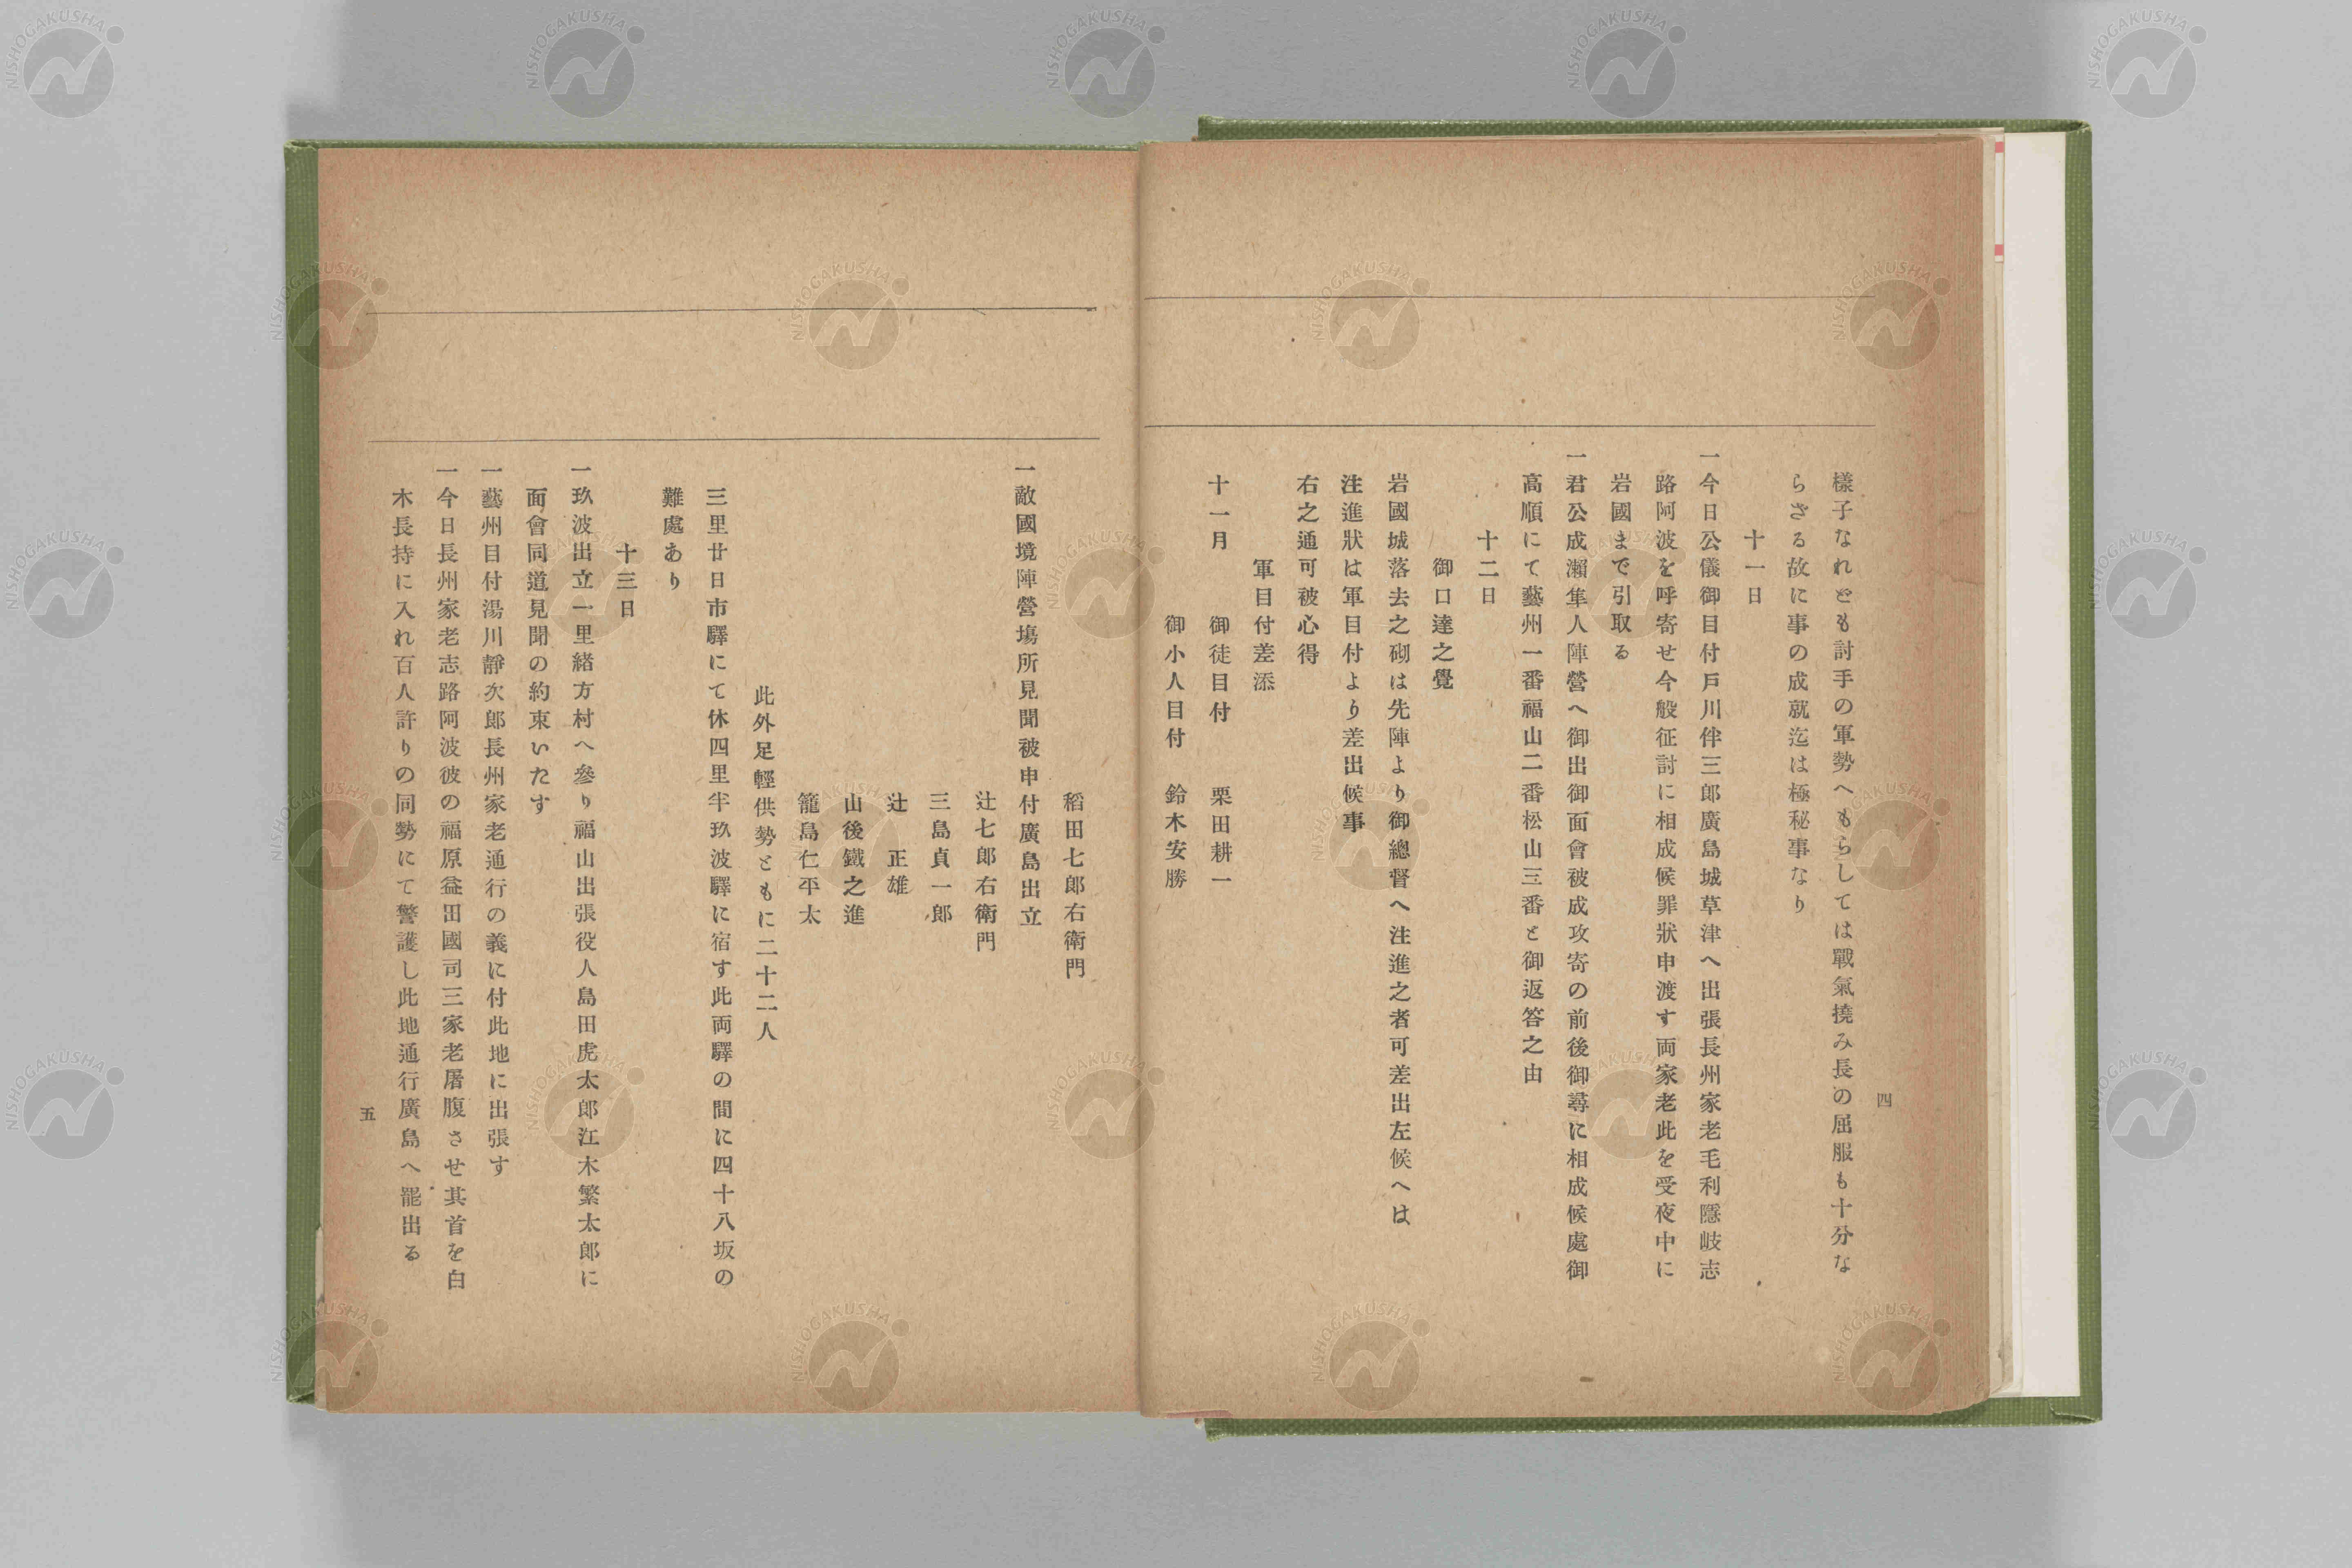 四
樣子なれども討手の軍勢へもらしては戰氣撓み長の屈服も十分な
らざる故に事の成就迄は極秘事なり
十一日
一今日公儀御目付戸川伴三郎廣島城草津へ出張長州家老毛利隱岐志
路阿波を呼寄せ今般征討に相成候罪狀申渡す両家老此を受夜中に
岩國まで引取る
一君公成瀨隼人陣營へ御出御面會被成攻寄の前後御尋に相成候處御
高順にて藝州一番福山二番松山三番と御返答之由
十二日
御口達之覺
岩國城落去之砌は先陣より御總督へ注進之者可差出左候へは
注進狀は軍目付より差出候事
右之通可被心得
軍目付差添
十一月 御徒目付 栗田耕一
御小人目付 鈴木安勝
稻田七郎右衛門
一敵國境陣營塲所見聞被申付廣島出立
辻七郎右衛門
三島貞一郎
辻 正雄
山後鐵之進
籠島仁平太
此外足輕供勢ともに二十二人
三里廿日市驛にて休四里半玖波驛に宿す此両驛の間に四十八坂の
難處あり
十三日
一玖波出立一里緒方村へ參り福山出張役人島田虎太郎江木繁太郎に
面會同道見聞の約束いたす
一藝州目付湯川靜次郎長州家老通行の義に付此地に出張す
一今日長州家老志路阿波彼の福原益田國司三家老屠腹させ其首を白
木長持に入れ百人許りの同勢にて警護し此地通行廣島へ罷出る
五
NISHOGAKUSHA